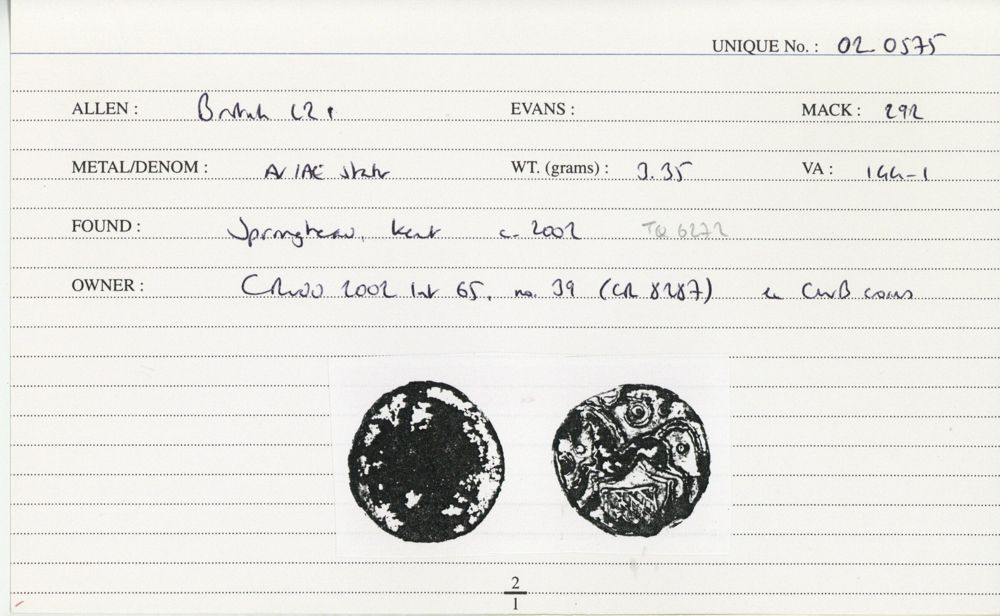 UNIQUE No. : 02.0575
ALLEN : British L21 EVANS : MACK : 292
METAL/DENOM : AV/AE stater WT. (grams) : 3.35 VA : 144-1
FOUND : Springhead, Kent c. 2002 TQ 6272
OWNER : 2002 list 65, no. 39 (CR 8287) ex CNB coins
2
1